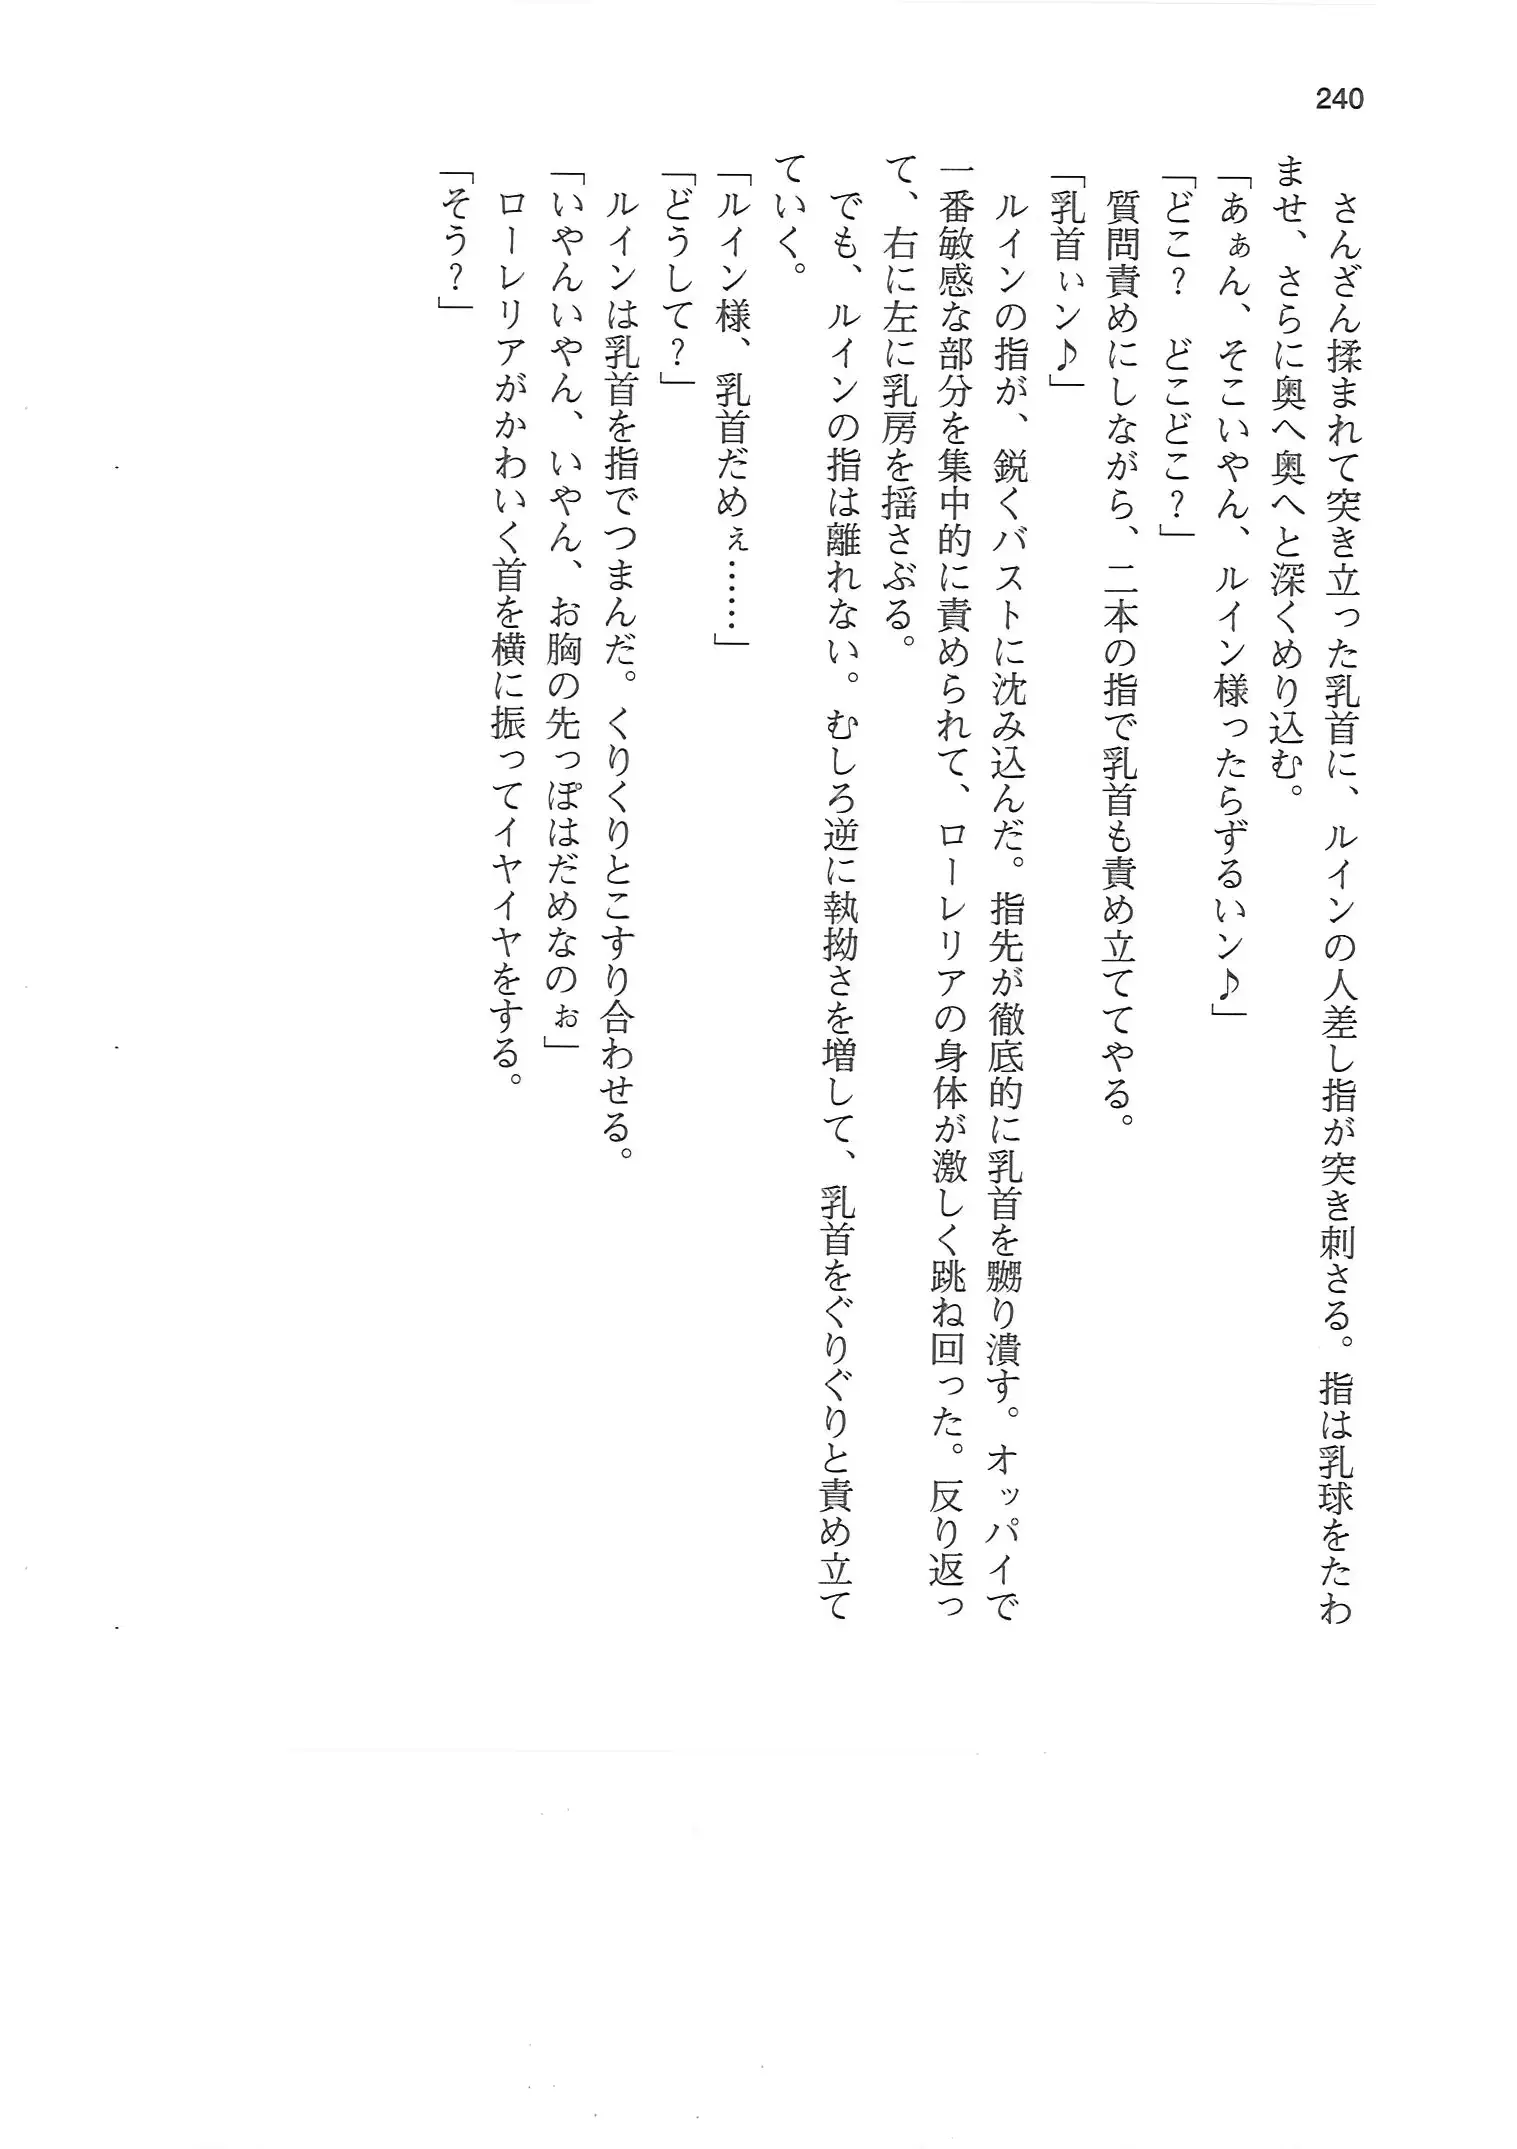 240
　さんざん揉まれて突き立った乳首に、ルインの人差し指が突き刺さる。指は乳球をたわ
ませ、さらに奥へ奥へと深くめり込む。
「あぁん、そこいやん、ルイン様ったらずるいン♪」
「どこ？　どこどこ？」
　質問責めにしながら、二本の指で乳首も責め立ててやる。
「乳首ぃン♪」
　ルインの指が、鋭くバストに沈み込んだ。指先が徹底的に乳首を嬲り潰す。オッパイで
一番敏感な部分を集中的に責められて、ローレリアの身体が激しく跳ね回った。反り返っ
て、右に左に乳房を揺さぶる。
　でも、ルインの指は離れない。むしろ逆に執拗さを増して、乳首をぐりぐりと責め立て
ていく。
「ルイン様、乳首だめぇ……」
「どうして？」
　ルインは乳首を指でつまんだ。くりくりとこすり合わせる。
「いやんいやん、いやん、お胸の先っぽはだめなのぉ」
　ローレリアがかわいく首を横に振ってイヤイヤをする。
「そう？」